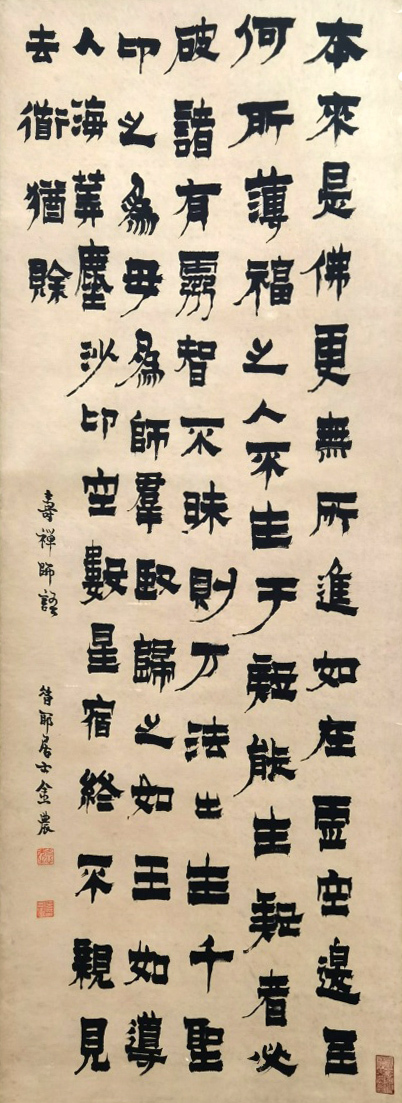 本來是佛更無所進如在虛空邊至
何所薄福之人不生于疑能生疑者必
破諸有靈智不昧則万法出生千聖
印之為母為師羣歸之如王如導
入海筭塵沙印空數星宿終不親見
去衜猶賒
壽禪師語 昔耶居士金農